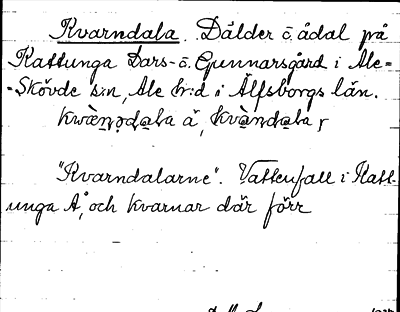 Kvarndala. Dälder o. ådal på
Kattunga Dars- o. Gunnarsgård i Ale-
-Skövde s:n, Ale h:d i Älfsborgs län.
kwàṇḍala å, kvàndala,
"Kvarndalarne". Vattenfall i Katt-
unga Å, och kvarnar där förr